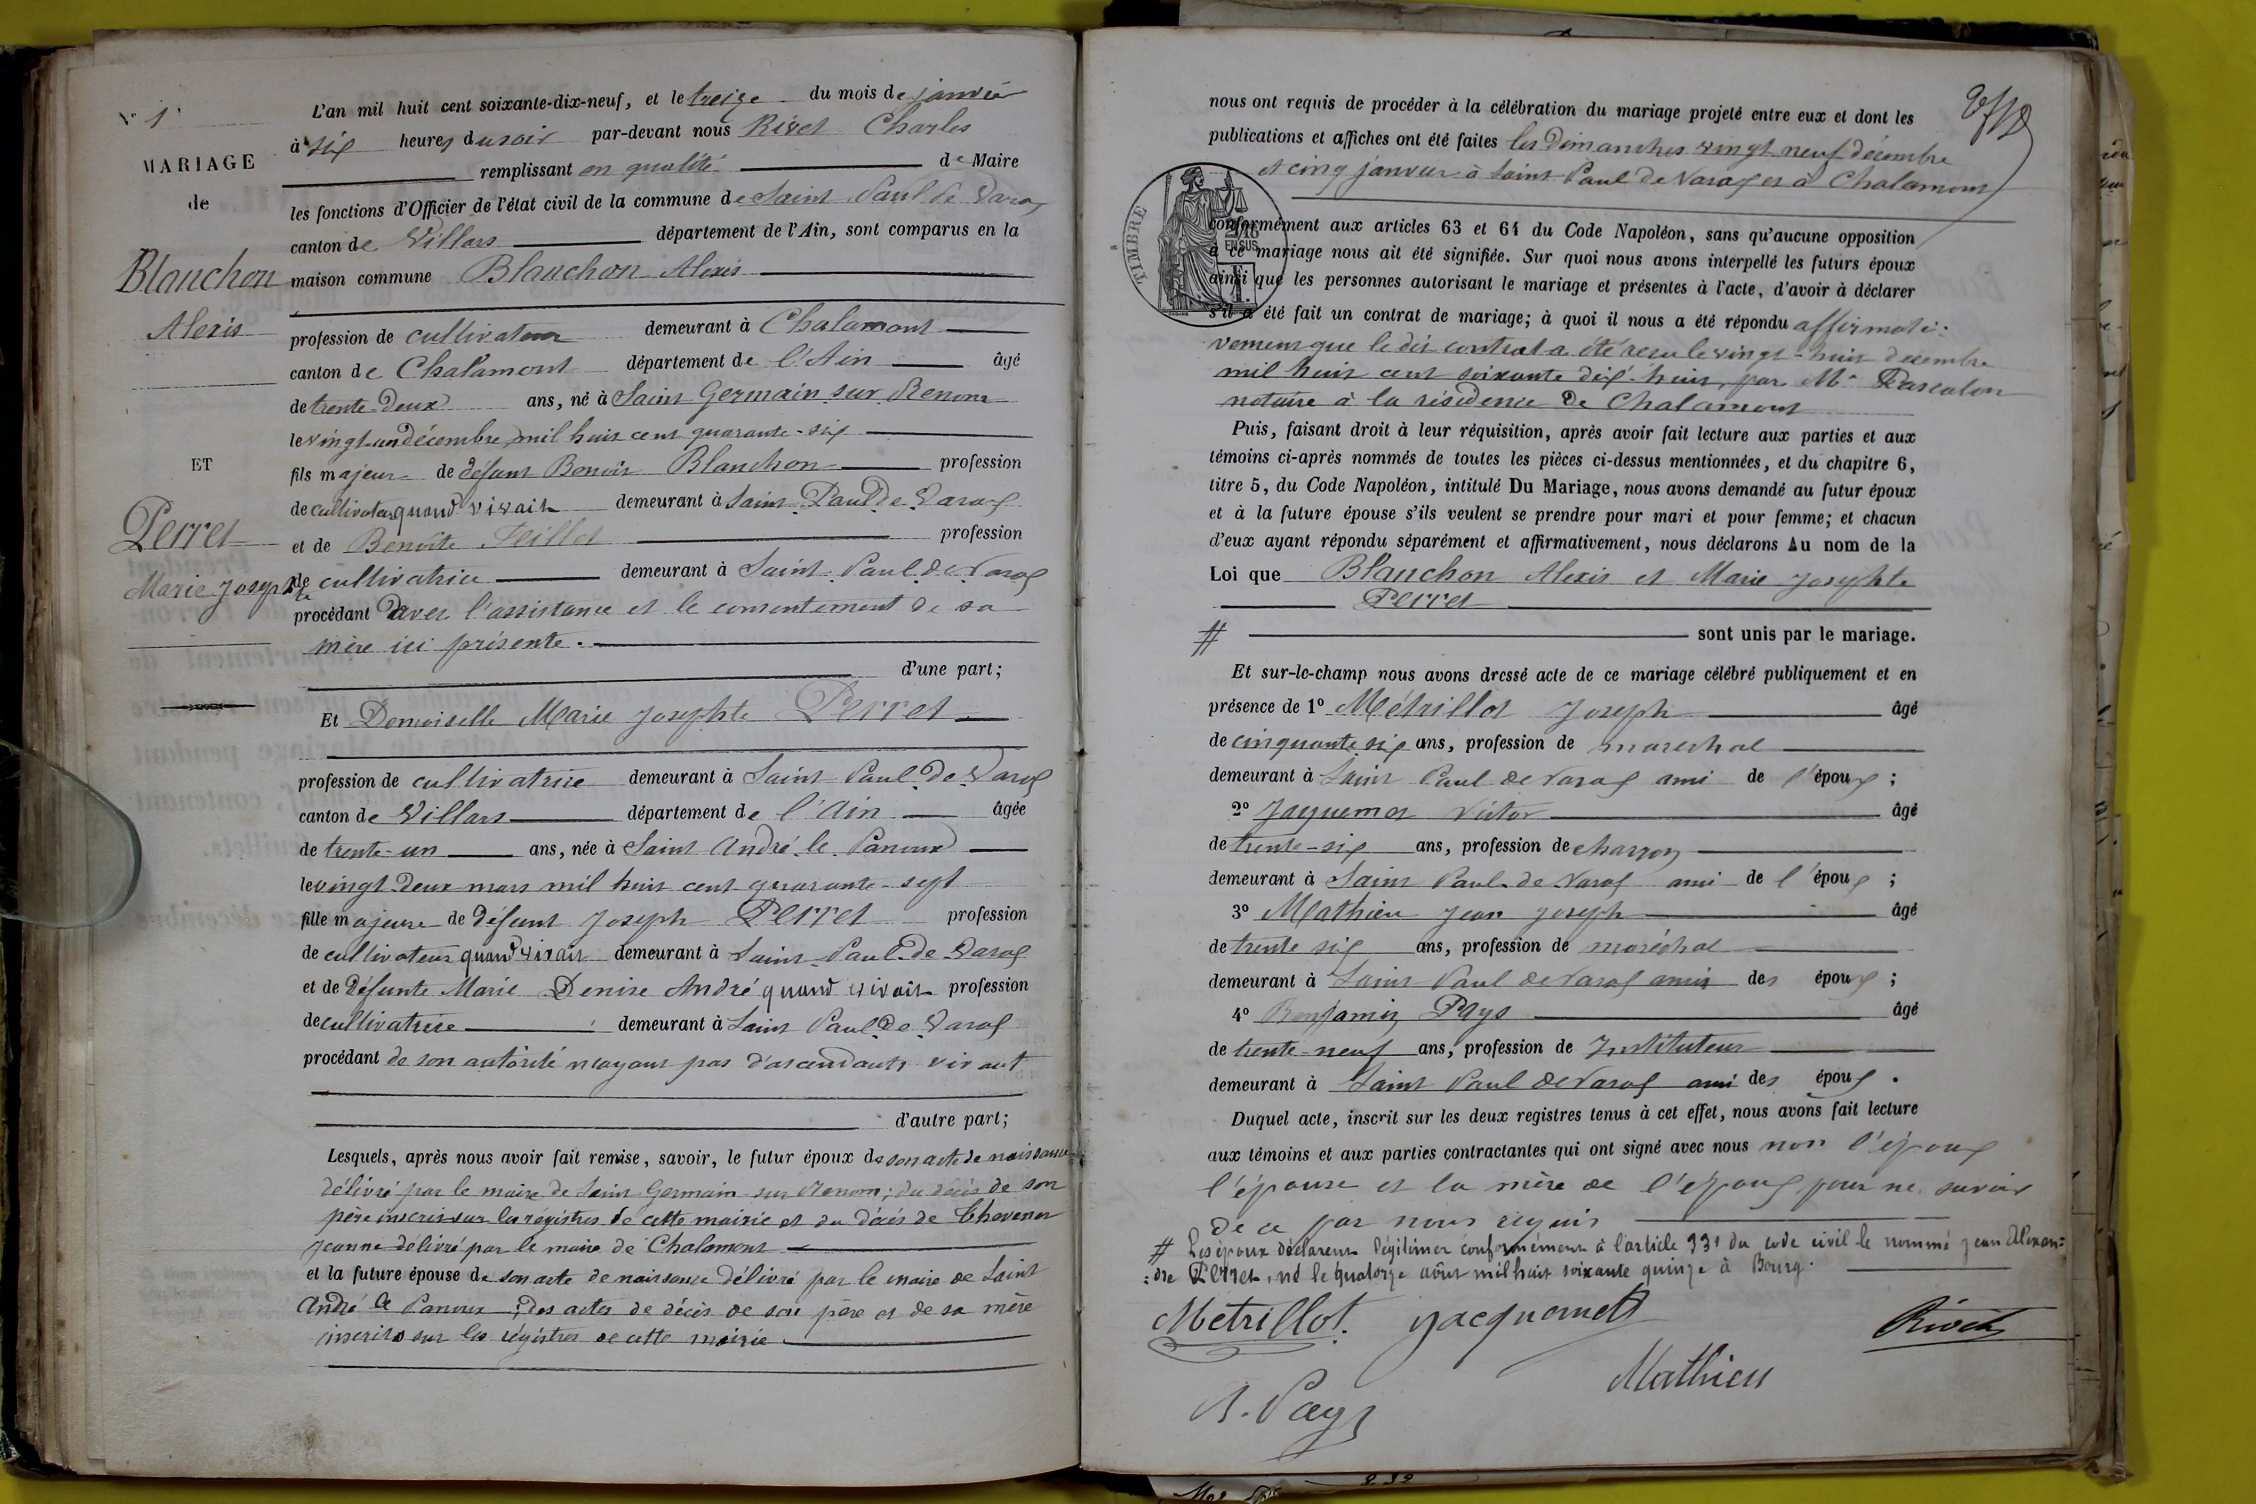 N° 1
MARIAGE
de
Blanchon
Alexis
ET
Perret
Marie Josephte
L'an mil huit cent soixante-dix-neuf, et le treize du mois de janvier
à six heures du soir par-devant nous Rivet Charles
remplissant en qualité de Maire
les fonctions d'Officier de l'état civil de la commune de Saint Paul de Varax
canton de Villars département de l'Ain, sont comparus en la
maison commune Blanchon Alexis
profession de cultivateur demeurant à Chalamont
canton de Chalamont département de l'Ain âgé
de trente-deux ans, né à Saint Germain sur Renom
le vingt-un décembre mil huit cent quarante-six
fils majeur de défunt Benoit Blanchon profession
de cultivateur quand vivait demeurant à Saint-Paul-de-Varax
et de Benoîte Feillet profession
de cultivatrice demeurant à Saint-Paul-de-Varax
procédant avec l'assistance et le consentement de sa
mère ici présente.
d'une part;
Et Demoiselle Marie Josephte Perret
profession de cultivatrice demeurant à Saint Paul-de-Varax
canton de Villars département de l'Ain âgée
de trente-un ans, née à Saint André-le-Panoux
le vingt-deux mars mil huit cent quarante-sept
fille majeure de défunt Joseph Perret profession
de cultivateur quand vivait demeurant à Saint-Paul-de-Varax
et de défunte Marie Denise André quand vivait profession
de cultivatrice demeurant à Saint Paul-de-Varax
procédant de son autorité n'ayant pas d'ascendants vivant
d'autre part;
Lesquels, après nous avoir fait remise, savoir, le futur époux de son acte de naissance
délivré par le maire de Saint Germain sur Renom; du décès de son
père inscrit sur les régistres de cette mairie et du décès de Thevenet
Jeanne délivré par le maire de Chalamont
et la future épouse de son acte de naissance délivré par le maire de Saint
André le Panoux; des actes de décès de son père et de sa mère
inscrits sur les régistres de cette mairie
nous ont requis de procéder à la célébration du mariage projeté entre eux et dont les
publications et affiches ont été faites les Dimanches vingt neuf décembre
et cinq janvier à Saint Paul de Varax et à Chalamont
TIMBRE
EN SUS
conformément aux articles 63 et 64 du Code Napoléon, sans qu'aucune opposition
à ce mariage nous ait été signifiée. Sur quoi nous avons interpellé les futurs époux
ainsi que les personnes autorisant le mariage et présentes à l'acte, d'avoir à déclarer
s'il a été fait un contrat de mariage; à quoi il nous a été répondu affirmati-
vement que le dit contrat a été reçu le vingt-huit décembre
mil huit cent soixante dix-huit, par Me Pascalon
notaire à la résidence de Chalamont
Puis, faisant droit à leur réquisition, après avoir fait lecture aux parties et aux
témoins ci-après nommés de toutes les pièces ci-dessus mentionnées, et du chapitre 6,
titre 5, du Code Napoléon, intitulé Du Mariage, nous avons demandé au futur époux
et à la future épouse s'ils veulent se prendre pour mari et pour femme; et chacun
d'eux ayant répondu séparément et affirmativement, nous déclarons Au nom de la
Loi que Blanchon Alexis et Marie Josephte
Perret
# sont unis par le mariage.
Et sur-le-champ nous avons dressé acte de ce mariage célébré publiquement et en
présence de 1° Métrillot Joseph âgé
de cinquante six ans, profession de marechal
demeurant à Saint Paul de Varax ami de l'époux;
2° Jaquemet Victor âgé
de trente-six ans, profession de charron
demeurant à Saint Paul-de Varax ami de l'époux;
3° Mathieu Jean Joseph âgé
de trente six ans, profession de maréchal
demeurant à Saint Paul de Varax amis des époux;
4° Benjamin Pays âgé
de trente-neuf ans, profession de Instituteur
demeurant à Saint Paul de Varax ami des époux.
Duquel acte, inscrit sur les deux registres tenus à cet effet, nous avons fait lecture
aux témoins et aux parties contractantes qui ont signé avec nous non l'époux
l'épouse et la mère de l'époux pour ne savoir
de ce par nous requis
# Les époux déclarent légitimer conformément à l'article 331 du code civil le nommé Jean Alexan-
-dre Perret, né le quatorze août mil huit soixante quinze à Bourg.
Métrillot. Jacquemet Rivet
Mathieu
B. Pays